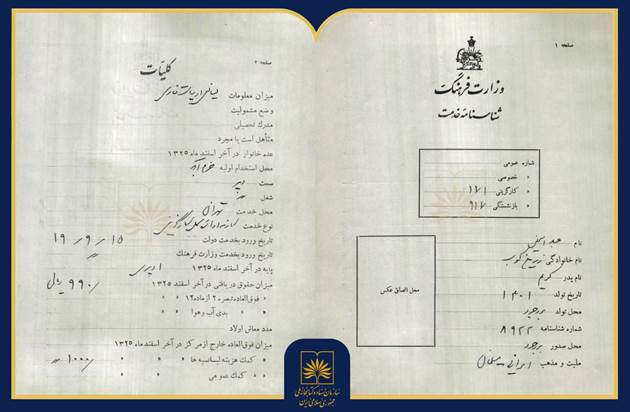 صفحه ۱
وزارت فرهنگ
شناسنامه خدمت
شماره عمومی
« خصوصی
« کارگزینی ۱۷۱
« بازنشستگی ۹۱۷
نام عبدالحسین
نام خانوادگی زرین کوب
نام پدر کریم
تاریخ تولد ۱۳۰۱
محل تولد بروجرد
شماره شناسنامه ۸۹۲۲
محل صدور بروجرد
ملیت و مذهب ایرانی - مسلمان
محل الصاق عکس
صفحه ۲
کلیّات
میزان معلومات لیسانس ادبیات فارسی
وضع مشمولیت
مدرک تحصیلی
متأهل است یا مجرد
عده خانوار در آخر اسفند ماه ۱۳۲۵
محل استخدام اولیه خرم آباد
سمت دبیر
شغل «
محل خدمت تهران
نوع خدمت
تاریخ ورود بخدمت دولت ۱۵ ر ۹ ر ۱۹
تاریخ ورود بخدمت وزارت فرهنگ «
پایه در آخر اسفند ماه ۱۳۲۵ ۱ دبیری
میزان حقوق دریافتی در آخر اسفند ۱۳۲۵ ۹۹۰/ ریال
« فوق‌العاده تبصره ۲ از ماده ۱۲ « « «
« « بدی آب و هوا « « «
مدد معاش اولاد
میزان فوق‌العاده خارج از مرکز در آخر اسفند ماه ۱۳۲۵
« کمک هزینه لیسانسیه ها « « « ۱۰۰۰/
« کمک عمومی « « «
سازمان اسناد و کتابخانه ملی
جمهوری اسلامی ایران